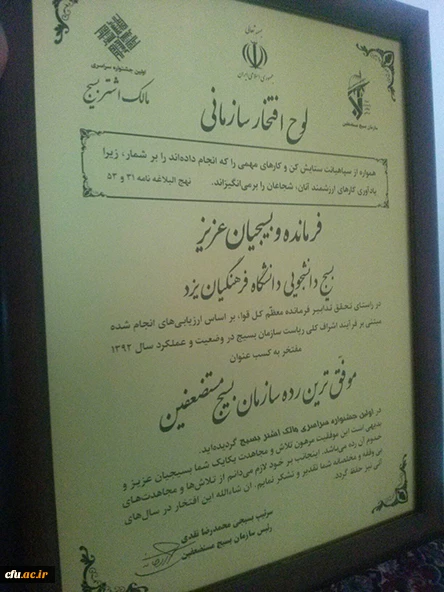 بسمه تعالی
جمهوری اسلامی ایران
اولین جشنواره سراسری
مالک اشتر بسیج
سازمان بسیج مستضعفین
لوح افتخار سازمانی
همواره از سپاهیانت ستایش کن و کارهای مهمی را که انجام داده‌اند را بر شمار، زیرا
یادآوری کارهای ارزشمند آنان، شجاعان را برمی‌انگیزاند. نهج البلاغه نامه ۳۱ و ۵۳
فرمانده و بسیجیان عزیز
بسیج دانشجویی دانشگاه فرهنگیان یزد
در راستای تحقق تدابیر فرمانده معظم کل قوا، بر اساس ارزیابی‌های انجام شده
مبتنی بر فرآیند اشراف کلی ریاست سازمان بسیج در وضعیت و عملکرد سال ۱۳۹۲
مفتخر به کسب عنوان
موفق ترین رده سازمان بسیج مستضعفین
در اولین جشنواره سراسری مالک اشتر بسیج گردیده‌اید.
بدیهی است این موفقیت مرهون تلاش و مجاهدت یکایک شما بسیجیان عزیز و
خدوم آن رده می‌باشد. اینجانب بر خود لازم می‌دانم از تلاش‌ها و مجاهدت‌های
بی وقفه و مخلصانه شما تقدیر و تشکر نمایم. ان شاءالله این افتخار در سال‌های
آتی نیز حفظ گردد.
سرتیپ بسیجی محمدرضا نقدی
رئیس سازمان بسیج مستضعفین
cfu.ac.ir